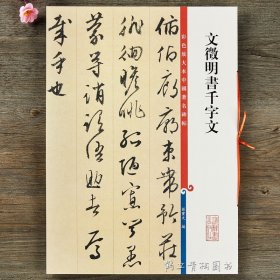 文徵明書千字文
彩色放大本中國著名碑帖
孫寶文 編
俯仰廊廟束帶矜莊
徘徊瞻眺孤陋寡聞愚
蒙等誚謂語助者焉
哉乎也